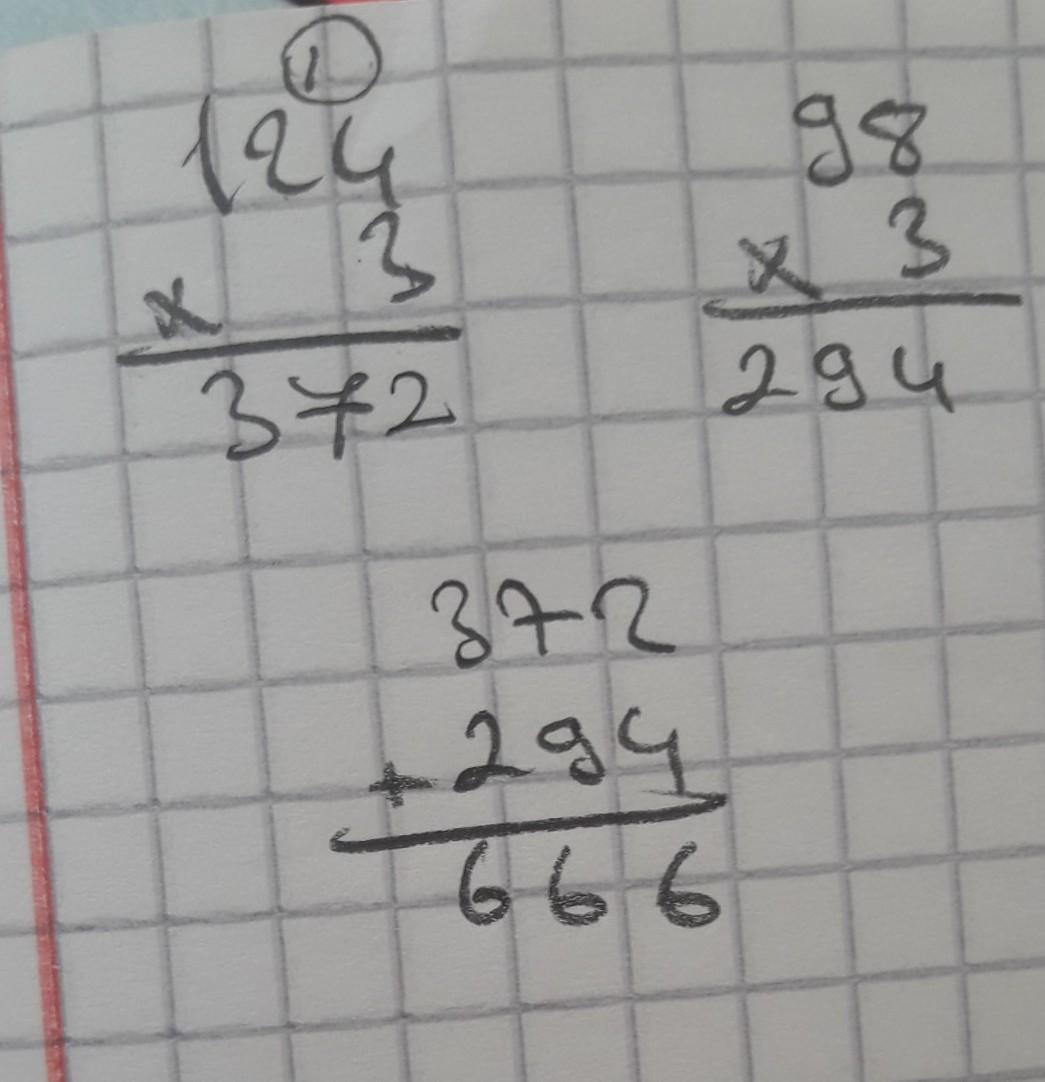 1
124
x 3
372
98
x 3
294
372
+ 294
666